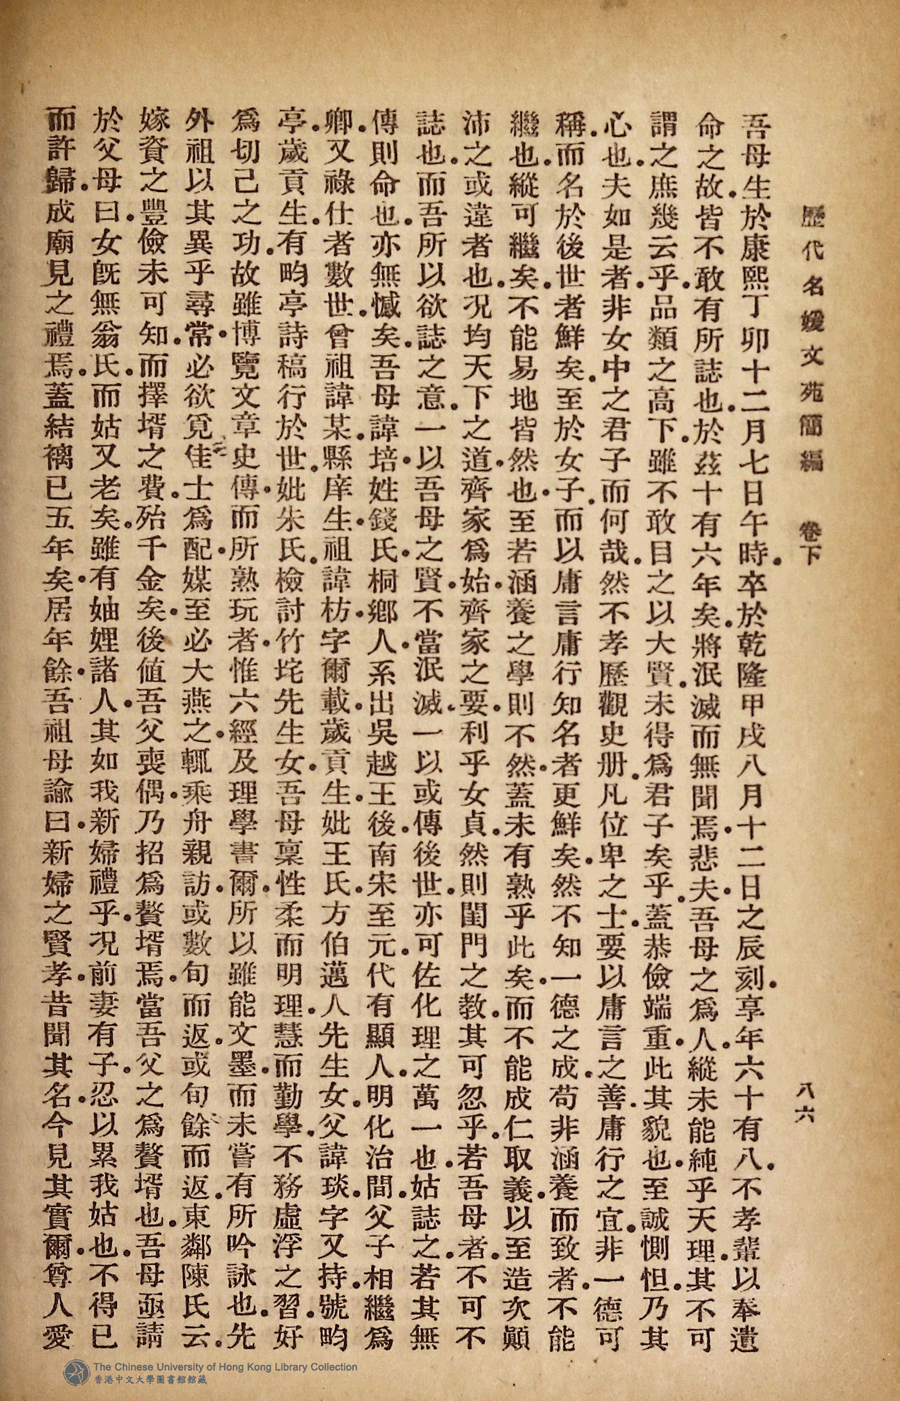 歷代名媛文苑簡編　卷下　八六
吾母生於康熙丁卯十二月七日午時卒於乾隆甲戌八月十二日之辰刻享年六十有八不孝輩以奉遺
命之故皆不敢有所誌也於茲十有六年矣將泯滅而無聞焉悲夫吾母之爲人縱未能純乎天理其不可
謂之庶幾云乎品類之高下雖不敢目之以大賢未得爲君子矣乎蓋恭儉端重此其貌也至誠惻怛乃其
心也夫如是者非女中之君子而何哉然不孝歷觀史册凡位卑之士要以庸言之善庸行之宜非一德可
稱而名於後世者鮮矣至於女子而以庸言庸行知名者更鮮矣然不知一德之成苟非涵養而致者不能
繼也縱可繼矣不能易地皆然也至若涵養之學則不然蓋未有熟乎此矣而不能成仁取義以至造次顚
沛之或違者也况均天下之道齊家爲始齊家之要利乎女貞然則閨門之教其可忽乎若吾母者不可不
誌也而吾所以欲誌之意一以吾母之賢不當泯滅一以或傳後世亦可佐化理之萬一也姑誌之若其無
傳則命也亦無憾矣吾母諱培姓錢氏桐鄉人系出吳越王後南宋至元代有顯人明化治間父子相繼爲
卿又祿仕者數世曾祖諱某縣庠生祖諱枋字爾載歲貢生妣王氏方伯邁人先生女父諱琰字又持號畇
亭歲貢生有畇亭詩稿行於世妣朱氏檢討竹垞先生女吾母稟性柔而明理慧而勤學不務虛浮之習好
爲切己之功故雖博覽文章史傳而所熟玩者惟六經及理學書爾所以雖能文墨而未嘗有所吟詠也先
外祖以其異乎尋常必欲覓佳士爲配媒至必大燕之輒乘舟親訪或數旬而返或旬餘而返東鄰陳氏云
嫁資之豐儉未可知而擇壻之費殆千金矣後値吾父喪偶乃招爲贅壻焉當吾父之爲贅壻也吾母亟請
於父母曰女旣無翁氏而姑又老矣雖有妯娌諸人其如我新婦禮乎况前妻有子忍以累我姑也不得已
而許歸成廟見之禮焉蓋結褵已五年矣居年餘吾祖母諭曰新婦之賢孝昔聞其名今見其實爾尊人愛
The Chinese University of Hong Kong Library Collection
香港中文大學圖書館館藏